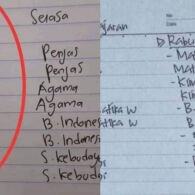 Selasa
Penjas
Penjas
Agama
Agama
B. Indones
B. Indones
S. kebuday
S. kebuday
jaran
atika W
ika W
Rabu
- Mat
Mat
- Kim
Kim
- B.
B.
- S